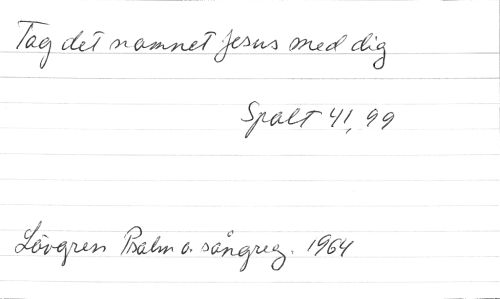 Tag det namnet Jesus med dig
Spalt 41, 99
Lövgren Psalm o. sångreg. 1964